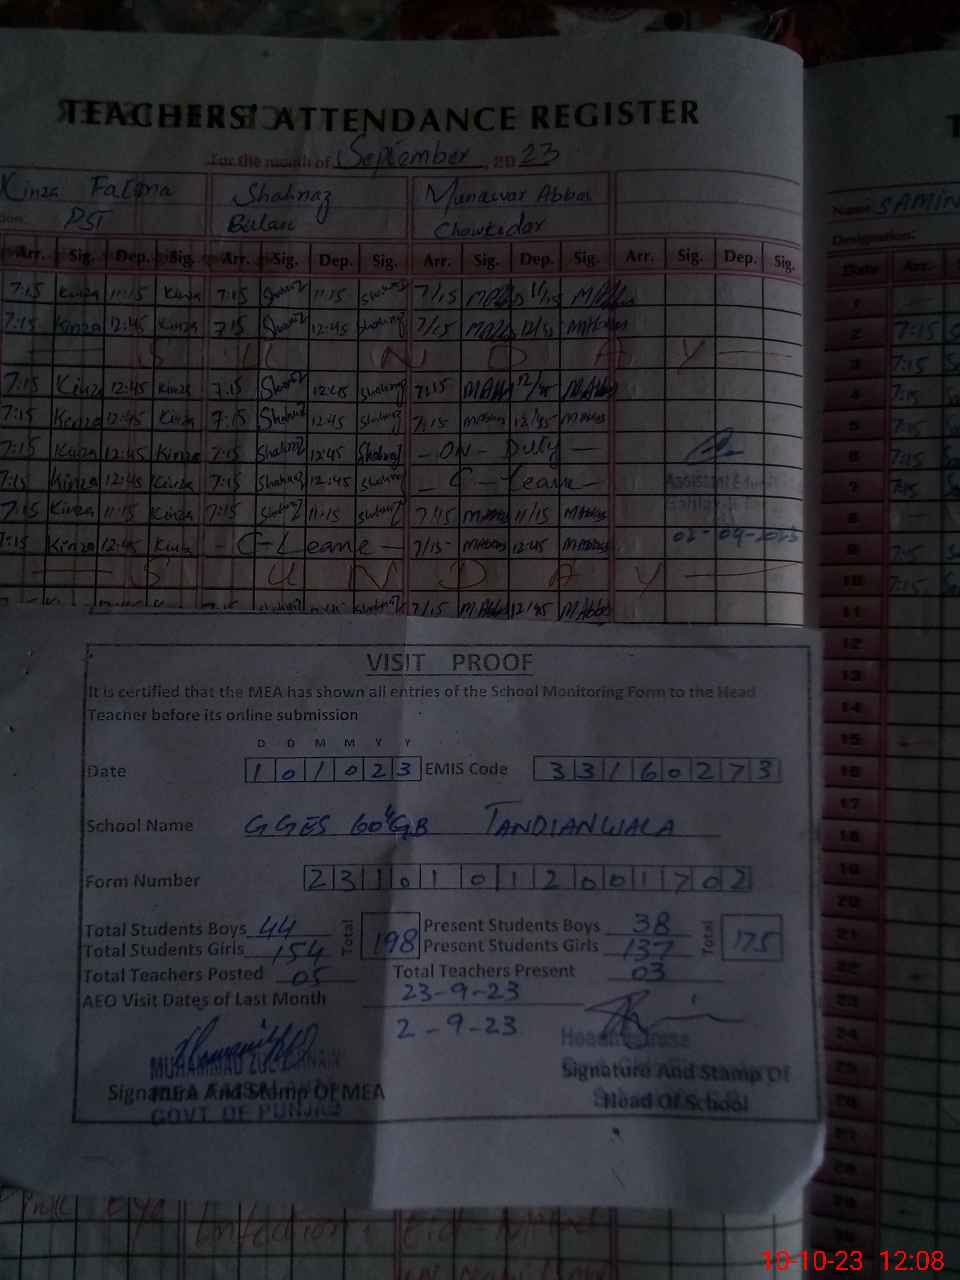 TEACHERS' ATTENDANCE REGISTER
For the month of September, 2023
Kinza Fatima Shahnaz Munawar Abbas
PST Chowkedar
Arr. Sig. Dep. Sig. Arr. Sig. Dep. Sig. Arr. Sig. Dep. Sig. Arr. Sig. Dep. Sig.
7:15 Kinza 11:15 Kinza 7:15 Shahnaz 11:15 Shahnaz 7/15 MAbbas 11/15 MAbbas
7:15 Kinza 12:45 Kinza 7:15 Shahnaz 12:45 Shahnaz 7/15 MAbbas 12/45 MAbbas
S U N D A Y
7:15 Kinza 12:45 Kinza 7:15 Shahnaz 12:45 Shahnaz 7:15 MAbbas 12/45 MAbbas
7:15 Kinza 12:45 Kinza 7:15 Shahnaz 12:45 Shahnaz 7:15 MAbbas 12/45 MAbbas
7:15 Kinza 12:45 Kinza 7:15 Shahnaz 12:45 Shahnaz - ON - Duty -
7:15 Kinza 12:45 Kinza 7:15 Shahnaz 12:45 Shahnaz - C - Leave -
7:15 Kinza 11:15 Kinza 7:15 Shahnaz 11:15 Shahnaz 7/15 MAbbas 11/15 MAbbas
7:15 Kinza 12:45 Kinza - C-Leave - 7/15 MAbbas 12:45 MAbbas 02-09-2023
S U N D A Y
7/15 MAbbas 12/45 MAbbas
VISIT PROOF
It is certified that the MEA has shown all entries of the School Monitoring Form to the Head
Teacher before its online submission
D D M M Y Y
Date 101023 EMIS Code 33160273
School Name GGES 604 GB TANDIANWALA
Form Number 23101012001702
Total Students Boys 44 Total 198 Present Students Boys 38 Total 175
Total Students Girls 154 Present Students Girls 137
Total Teachers Posted 05 Total Teachers Present 03
AEO Visit Dates of Last Month 23-9-23
2-9-23
MUHAMMAD ZULQARNAIN
Signature And Stamp Of MEA
GOVT OF PUNJAB
Headmistress
Signature And Stamp Of
Head Of School
Name SAMIN
Designation:
Date Arr.
1
2 7:15
3 7:15
4 7:15
5 7:15
6 7:15
7 7:15
8
9 7:15
10 7:15
11
12
13
14
15
16
17
18
19
20
21
22
23
24
25
26
27
28
29
Pink Eye Infection
10-10-23 12:08